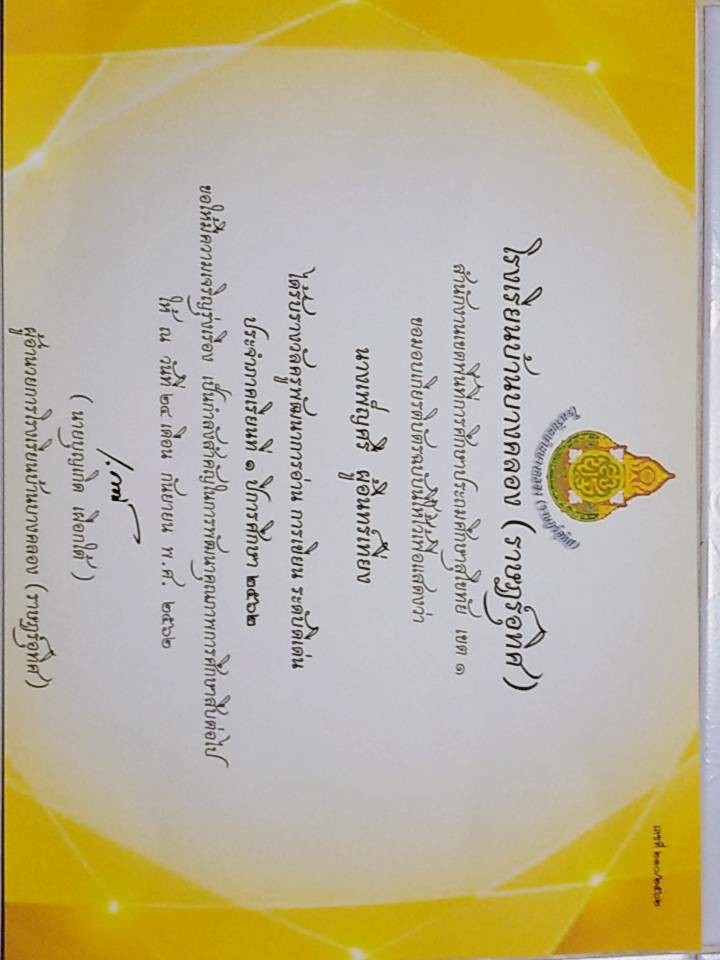 เลขที่ ๒๑๐/๒๕๖๒
โรงเรียนบ้านบางคลอง (ราษฎร์อุทิศ)
โรงเรียนบ้านบางคลอง (ราษฎร์อุทิศ)
สำนักงานเขตพื้นที่การศึกษาประถมศึกษาสุโขทัย เขต ๑
ขอมอบเกียรติบัตรฉบับนี้ให้ไว้เพื่อแสดงว่า
นางเพ็ญศรี ผู้อินทร์เที่ยง
ได้รับรางวัลครูพัฒนาการอ่าน การเขียน ระดับดีเด่น
ประจำภาคเรียนที่ ๑ ปีการศึกษา ๒๕๖๒
ขอให้มีความเจริญรุ่งเรือง เป็นกำลังสำคัญในการพัฒนาคุณภาพการศึกษาสืบต่อไป
ให้ ณ วันที่ ๒๔ เดือน กันยายน พ.ศ. ๒๕๖๒
ผู้อำนวยการโรงเรียนบ้านบางคลอง (ราษฎร์อุทิศ)